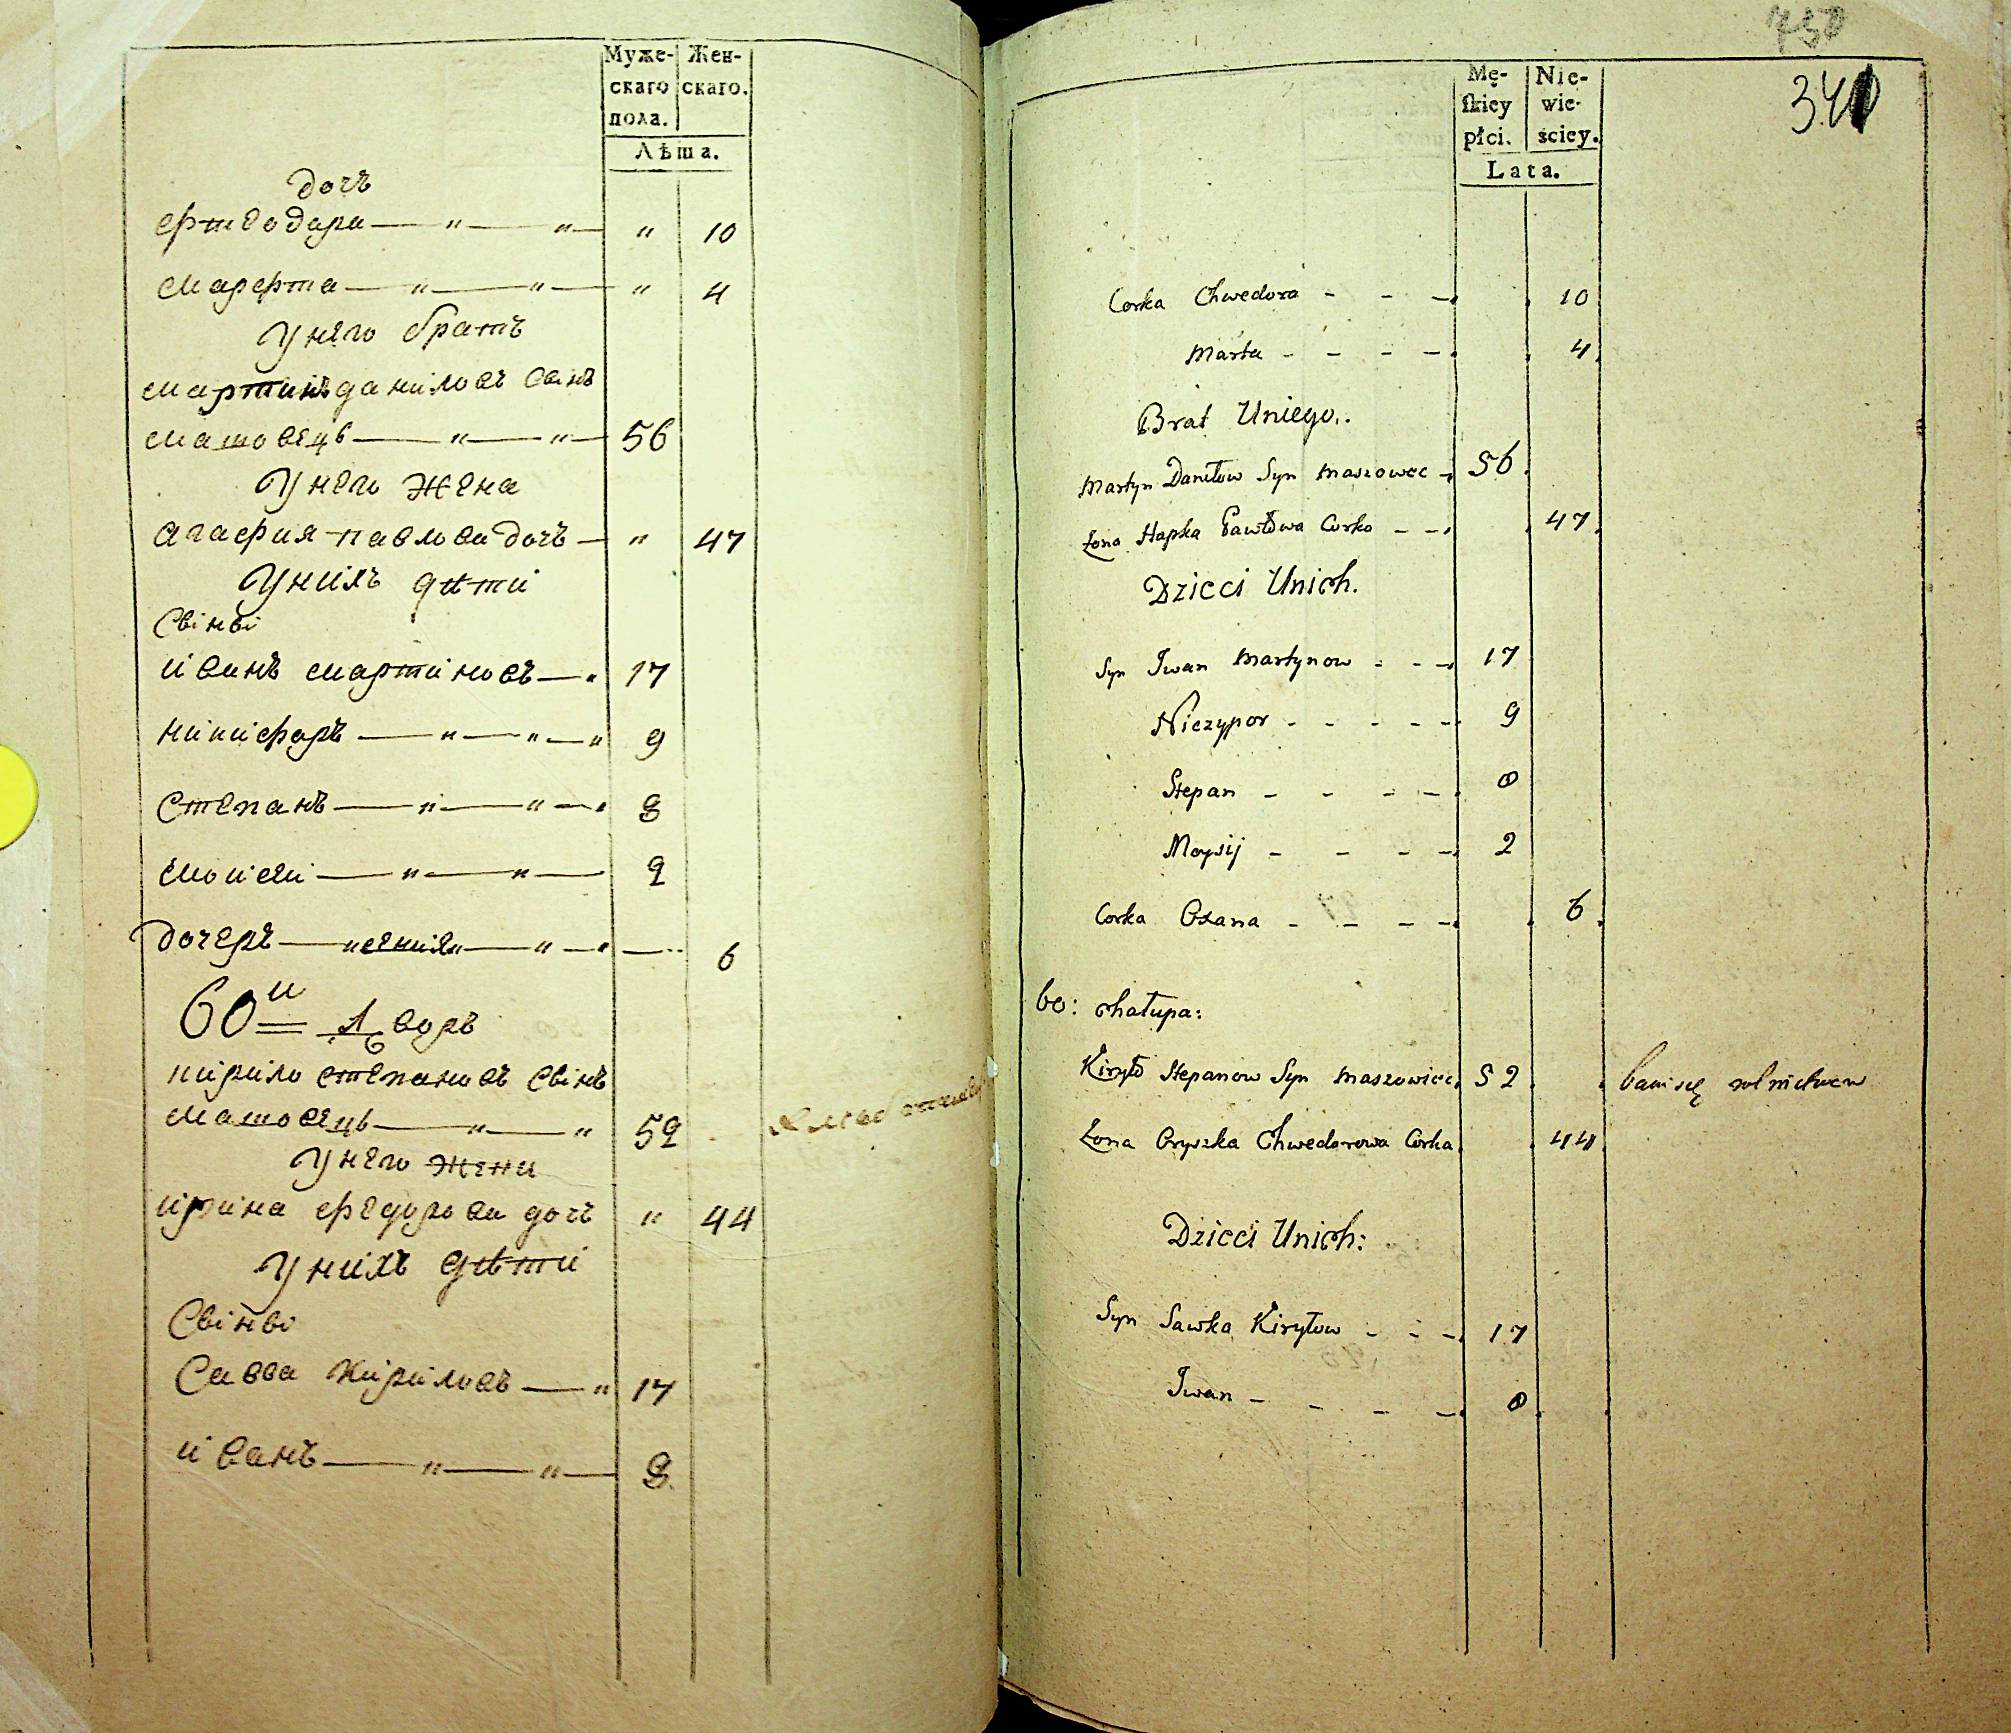 Муже-
скаго
пола.
Жен-
скаго.
Лѣта.
дочь
Ѳтеодора — " — " — " 10
Марѳта — " — " — " 4
У него братъ
Мартинъ данiловъ Сынъ
Машовецъ — " — " — 56
У него жена
Агафия павлова дочь — " 47
У нихъ дѣти
Сыны
иванъ мартiновъ — " 17
никифоръ — " — " — " 9
Степанъ — " — " — " 8
Моисеи — " — " — 2
дочеръ — " — " — " — 6
60й Дворъ
кирило степановъ Сынъ
Машовецъ — " — " 52
У него жена
ирина федорова дочь " 44
У нихъ дѣти
Сыны
Савва Кириловъ — " 17
иванъ — " — " — 8
750
340
Mę-
skiey
płci.
Nie-
wie-
ściey.
Lata.
Corka Chwedora - - - 10
Marta - - - - 4
Brat Uniego.
Martyn Daniłow Syn Maszowec - 56
Żona Hapka Pawłowa Corka - - 47
Dzieci Unich.
Syn Iwan Martynow - - - 17
Niczypor - - - - - 9
Stepan - - - - 8
Moysij - - - - 2
Corka Oxana - - - - 6
60: Chałupa:
Kiryło Stepanow Syn Maszowiec 52 bawi się rolnictwem
Żona Oryszka Chwedorowa Corka 44
Dzieci Unich:
Syn Sawka Kiryłow - - - 17
Iwan - - - - 8